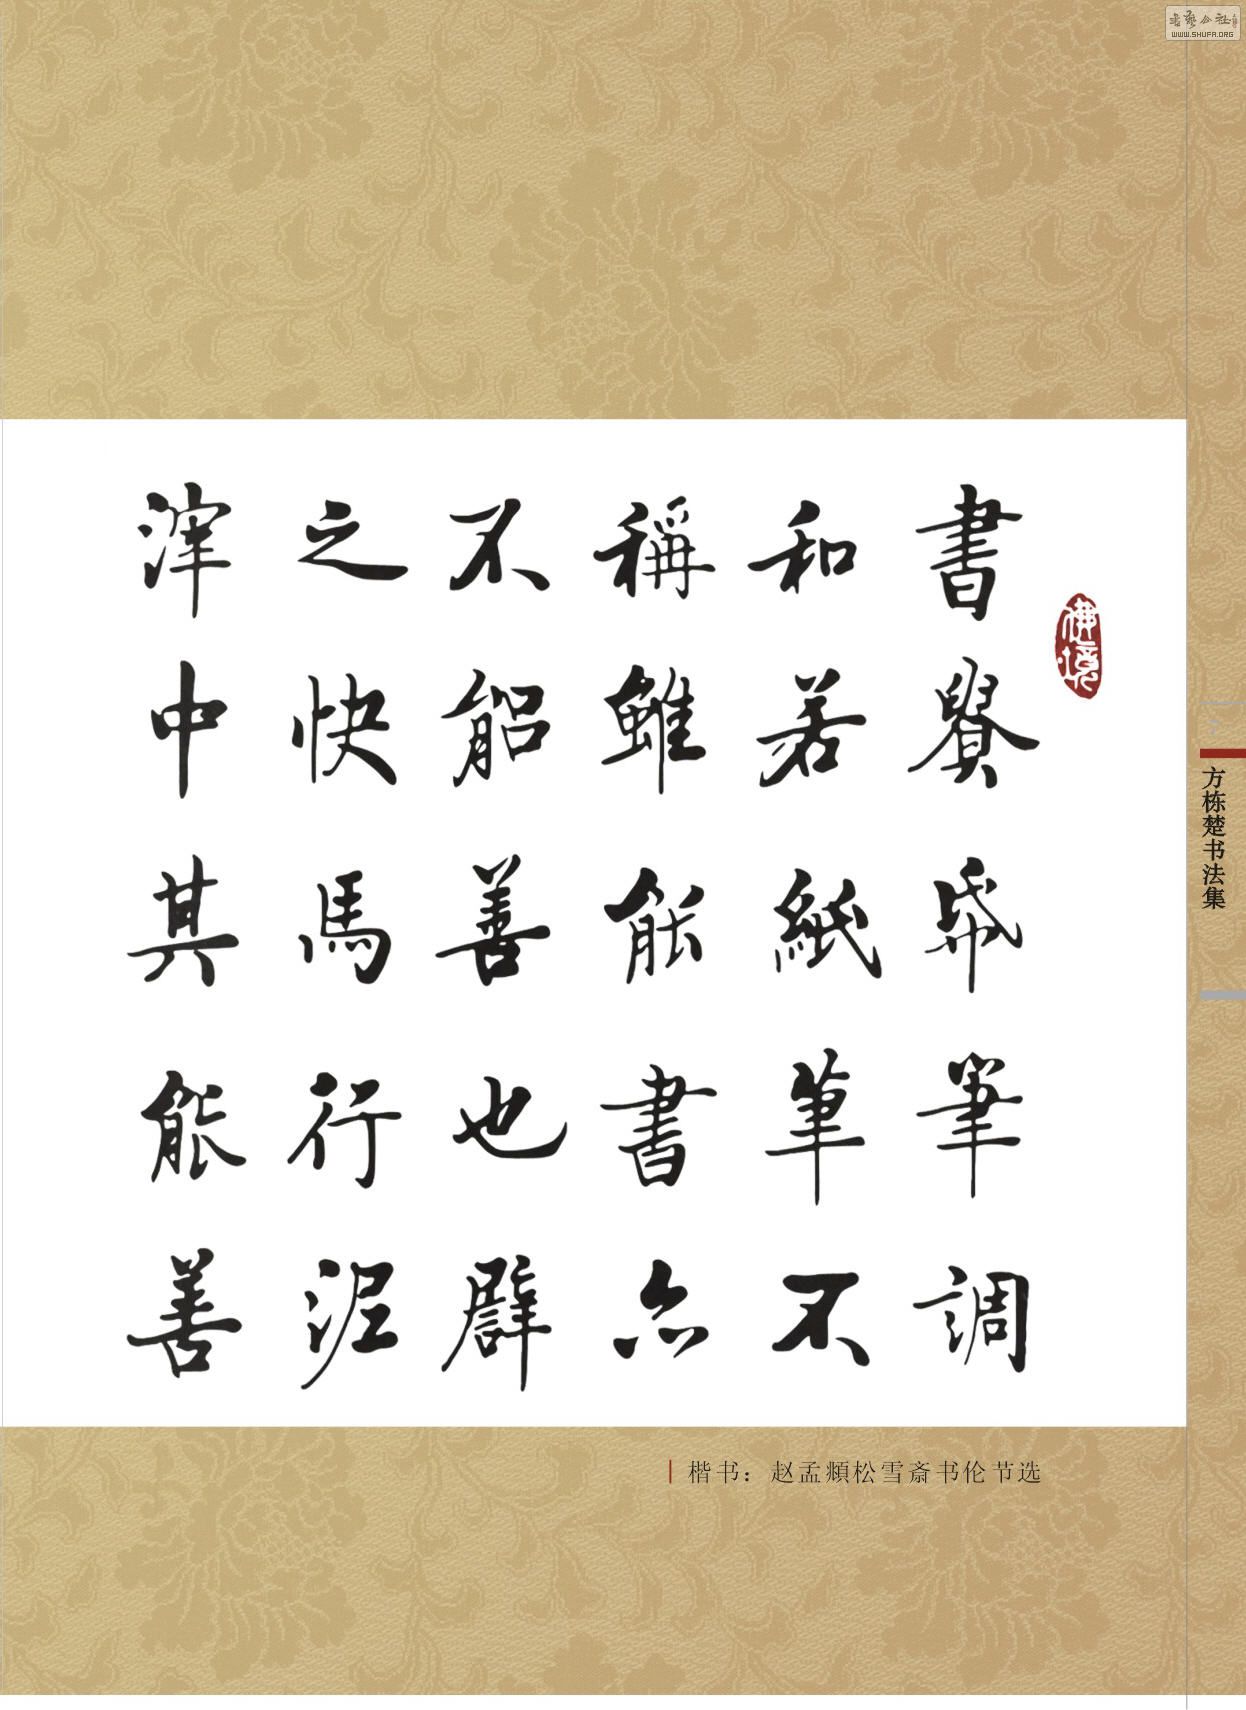 書貴㡀筆調
和若紙筆不
稱雖能書亦
不能善也譬
之快馬行泥
滓中其能善
楷书：赵孟頫松雪斋书伦节选
方栋楚书法集
WWW.SHUFA.ORG